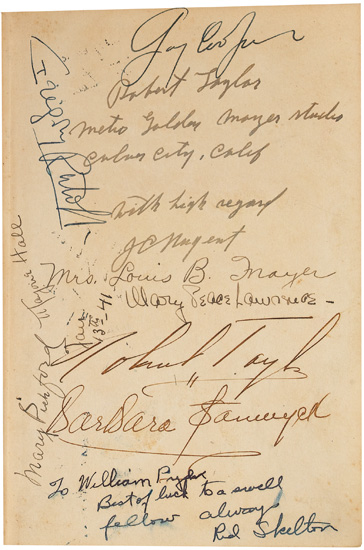 Gary Cooper
Robert Taylor
Metro Golden Mayer studio
Culver City, Calif
with high regard
J C Nugent
Mrs. Louis B. Mayer
Mary Peace Lawrence
Robert Taylor
Barbara Stanwyck
To William
Best of luck to a swell
fellow always
Red Skelton
Mary Pickford
Hall
Jan
13th - 41